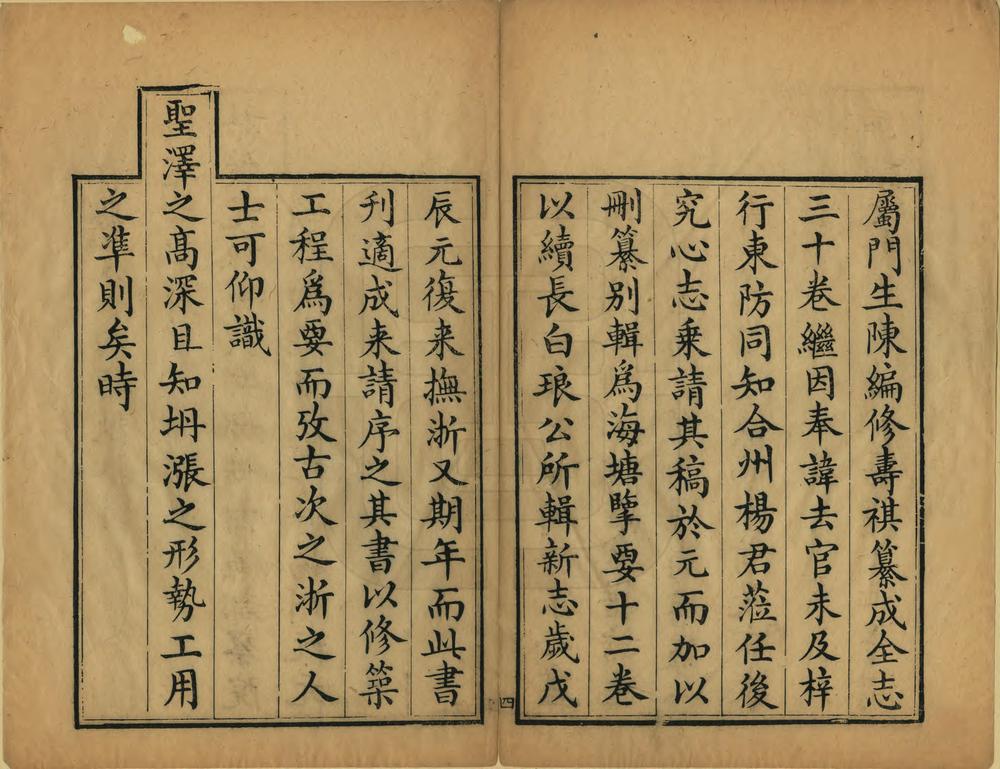 屬門生陳編修壽祺纂成全志
三十卷繼因奉諱去官未及梓
行東防同知合州楊君蒞任後
究心志乘請其稿於元而加以
刪纂別輯爲海塘擥要十二卷
以續長白琅公所輯新志歲戊
四
辰元復来撫浙又期年而此書
刋適成来請序之其書以修築
工程爲要而攷古次之浙之人
士可仰識
聖澤之髙深且知坍漲之形勢工用
之準則矣時